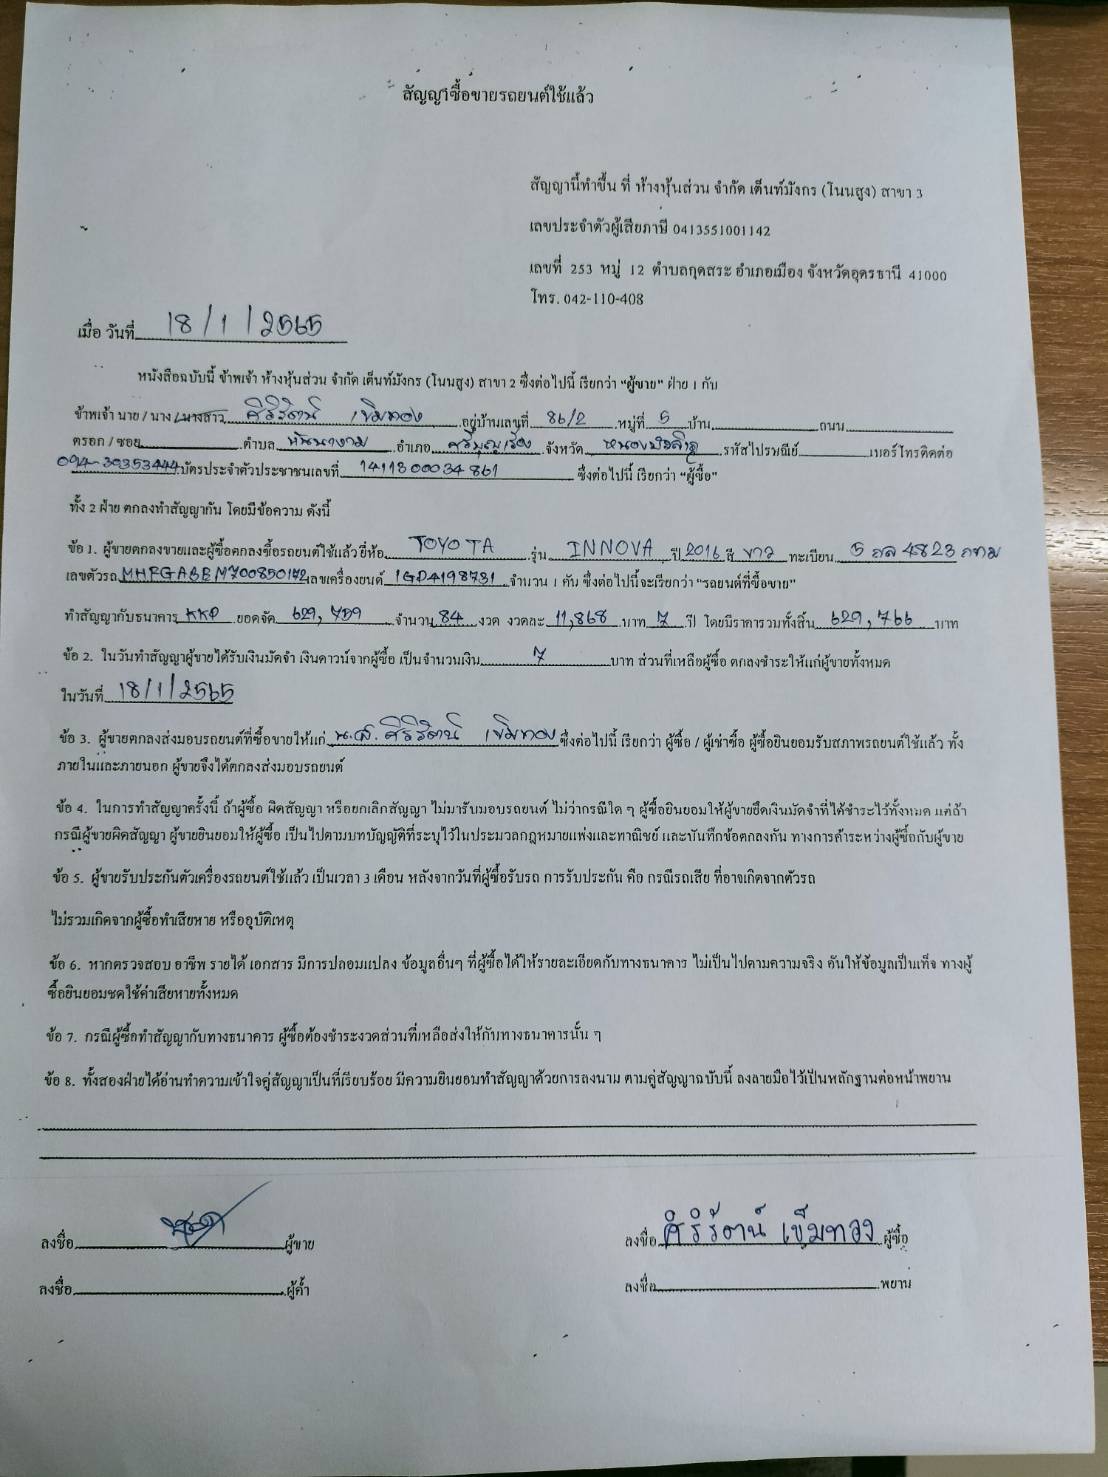 สัญญาซื้อขายรถยนต์ใช้แล้ว
สัญญานี้ทำขึ้น ที่ ห้างหุ้นส่วน จำกัด เต็นท์มังกร (โนนสูง) สาขา 3
เลขประจำตัวผู้เสียภาษี 0413551001142
เลขที่ 253 หมู่ 12 ตำบลกุดสระ อำเภอเมือง จังหวัดอุดรธานี 41000
โทร. 042-110-408
เมื่อ วันที่ 18/1/2565
หนังสือฉบับนี้ ข้าพเจ้า ห้างหุ้นส่วน จำกัด เต็นท์มังกร (โนนสูง) สาขา 2 ซึ่งต่อไปนี้ เรียกว่า "ผู้ขาย" ฝ่าย 1 กับ
ข้าพเจ้า นาย / นาง / นางสาว ศิริรัตน์ เข็มทอง อยู่บ้านเลขที่ 86/2 หมู่ที่ 5 บ้าน ถนน
ตรอก / ซอย ตำบล หันนางาม อำเภอ ศรีบุญเรือง จังหวัด หนองบัวลำภู รหัสไปรษณีย์ เบอร์โทรติดต่อ
094-30353444 บัตรประจำตัวประชาชนเลขที่ 1411800034861 ซึ่งต่อไปนี้ เรียกว่า "ผู้ซื้อ"
ทั้ง 2 ฝ่าย ตกลงทำสัญญากัน โดยมีข้อความ ดังนี้
ข้อ 1. ผู้ขายตกลงขายและผู้ซื้อตกลงซื้อรถยนต์ใช้แล้วยี่ห้อ TOYOTA รุ่น INNOVA ปี 2016 สี ขาว ทะเบียน 5 กล 4823 กทม
เลขตัวรถ เลขเครื่องยนต์ 1GD4198731 จำนวน 1 คัน ซึ่งต่อไปนี้จะเรียกว่า "รถยนต์ที่ซื้อขาย"
ทำสัญญากับธนาคาร KKP ยอดจัด จำนวน 84 งวด งวดละ 11,868 บาท 7 ปี โดยมีราคารวมทั้งสิ้น 629,766 บาท
ข้อ 2. ในวันทำสัญญาผู้ขายได้รับเงินมัดจำ เงินดาวน์จากผู้ซื้อ เป็นจำนวนเงิน 7 บาท ส่วนที่เหลือผู้ซื้อ ตกลงชำระให้แก่ผู้ขายทั้งหมด
ในวันที่ 18/1/2565
ข้อ 3. ผู้ขายตกลงส่งมอบรถยนต์ที่ซื้อขายให้แก่ น.ส. ศิริรัตน์ เข็มทอง ซึ่งต่อไปนี้ เรียกว่า ผู้ซื้อ / ผู้เช่าซื้อ ผู้ซื้อยินยอมรับสภาพรถยนต์ใช้แล้ว ทั้ง
ภายในและภายนอก ผู้ขายจึงได้ตกลงส่งมอบรถยนต์
ข้อ 4. ในการทำสัญญาครั้งนี้ ถ้าผู้ซื้อ ผิดสัญญา หรือยกเลิกสัญญา ไม่มารับมอบรถยนต์ ไม่ว่ากรณีใด ๆ ผู้ซื้อยินยอมให้ผู้ขายยึดเงินมัดจำที่ได้ชำระไว้ทั้งหมด แต่ถ้า
กรณีผู้ขายผิดสัญญา ผู้ขายยินยอมให้ผู้ซื้อ เป็นไปตามบทบัญญัติที่ระบุไว้ในประมวลกฎหมายแพ่งและพาณิชย์ และบันทึกข้อตกลงกัน ทางการค้าระหว่างผู้ซื้อกับผู้ขาย
ข้อ 5. ผู้ขายรับประกันตัวเครื่องรถยนต์ใช้แล้ว เป็นเวลา 3 เดือน หลังจากวันที่ผู้ซื้อรับรถ การรับประกัน คือ กรณีรถเสีย ที่อาจเกิดจากตัวรถ
ไม่รวมเกิดจากผู้ซื้อทำเสียหาย หรืออุบัติเหตุ
ข้อ 6. หากตรวจสอบ อาชีพ รายได้ เอกสาร มีการปลอมแปลง ข้อมูลอื่นๆ ที่ผู้ซื้อได้ให้รายละเอียดกับทางธนาคาร ไม่เป็นไปตามความจริง อันให้ข้อมูลเป็นเท็จ ทางผู้
ซื้อยินยอมชดใช้ค่าเสียหายทั้งหมด
ข้อ 7. กรณีผู้ซื้อทำสัญญากับทางธนาคาร ผู้ซื้อต้องชำระงวดส่วนที่เหลือส่งให้กับทางธนาคารนั้น ๆ
ข้อ 8. ทั้งสองฝ่ายได้อ่านทำความเข้าใจคู่สัญญาเป็นที่เรียบร้อย มีความยินยอมทำสัญญาด้วยการลงนาม ตามคู่สัญญาฉบับนี้ ลงลายมือไว้เป็นหลักฐานต่อหน้าพยาน
ลงชื่อ ผู้ขาย ลงชื่อ ศิริรัตน์ เข็มทอง ผู้ซื้อ
ลงชื่อ ผู้ค้ำ ลงชื่อ พยาน